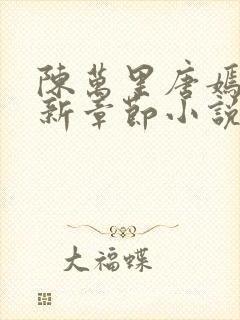 陳萬里唐嫣
新章節小說
大福蝶